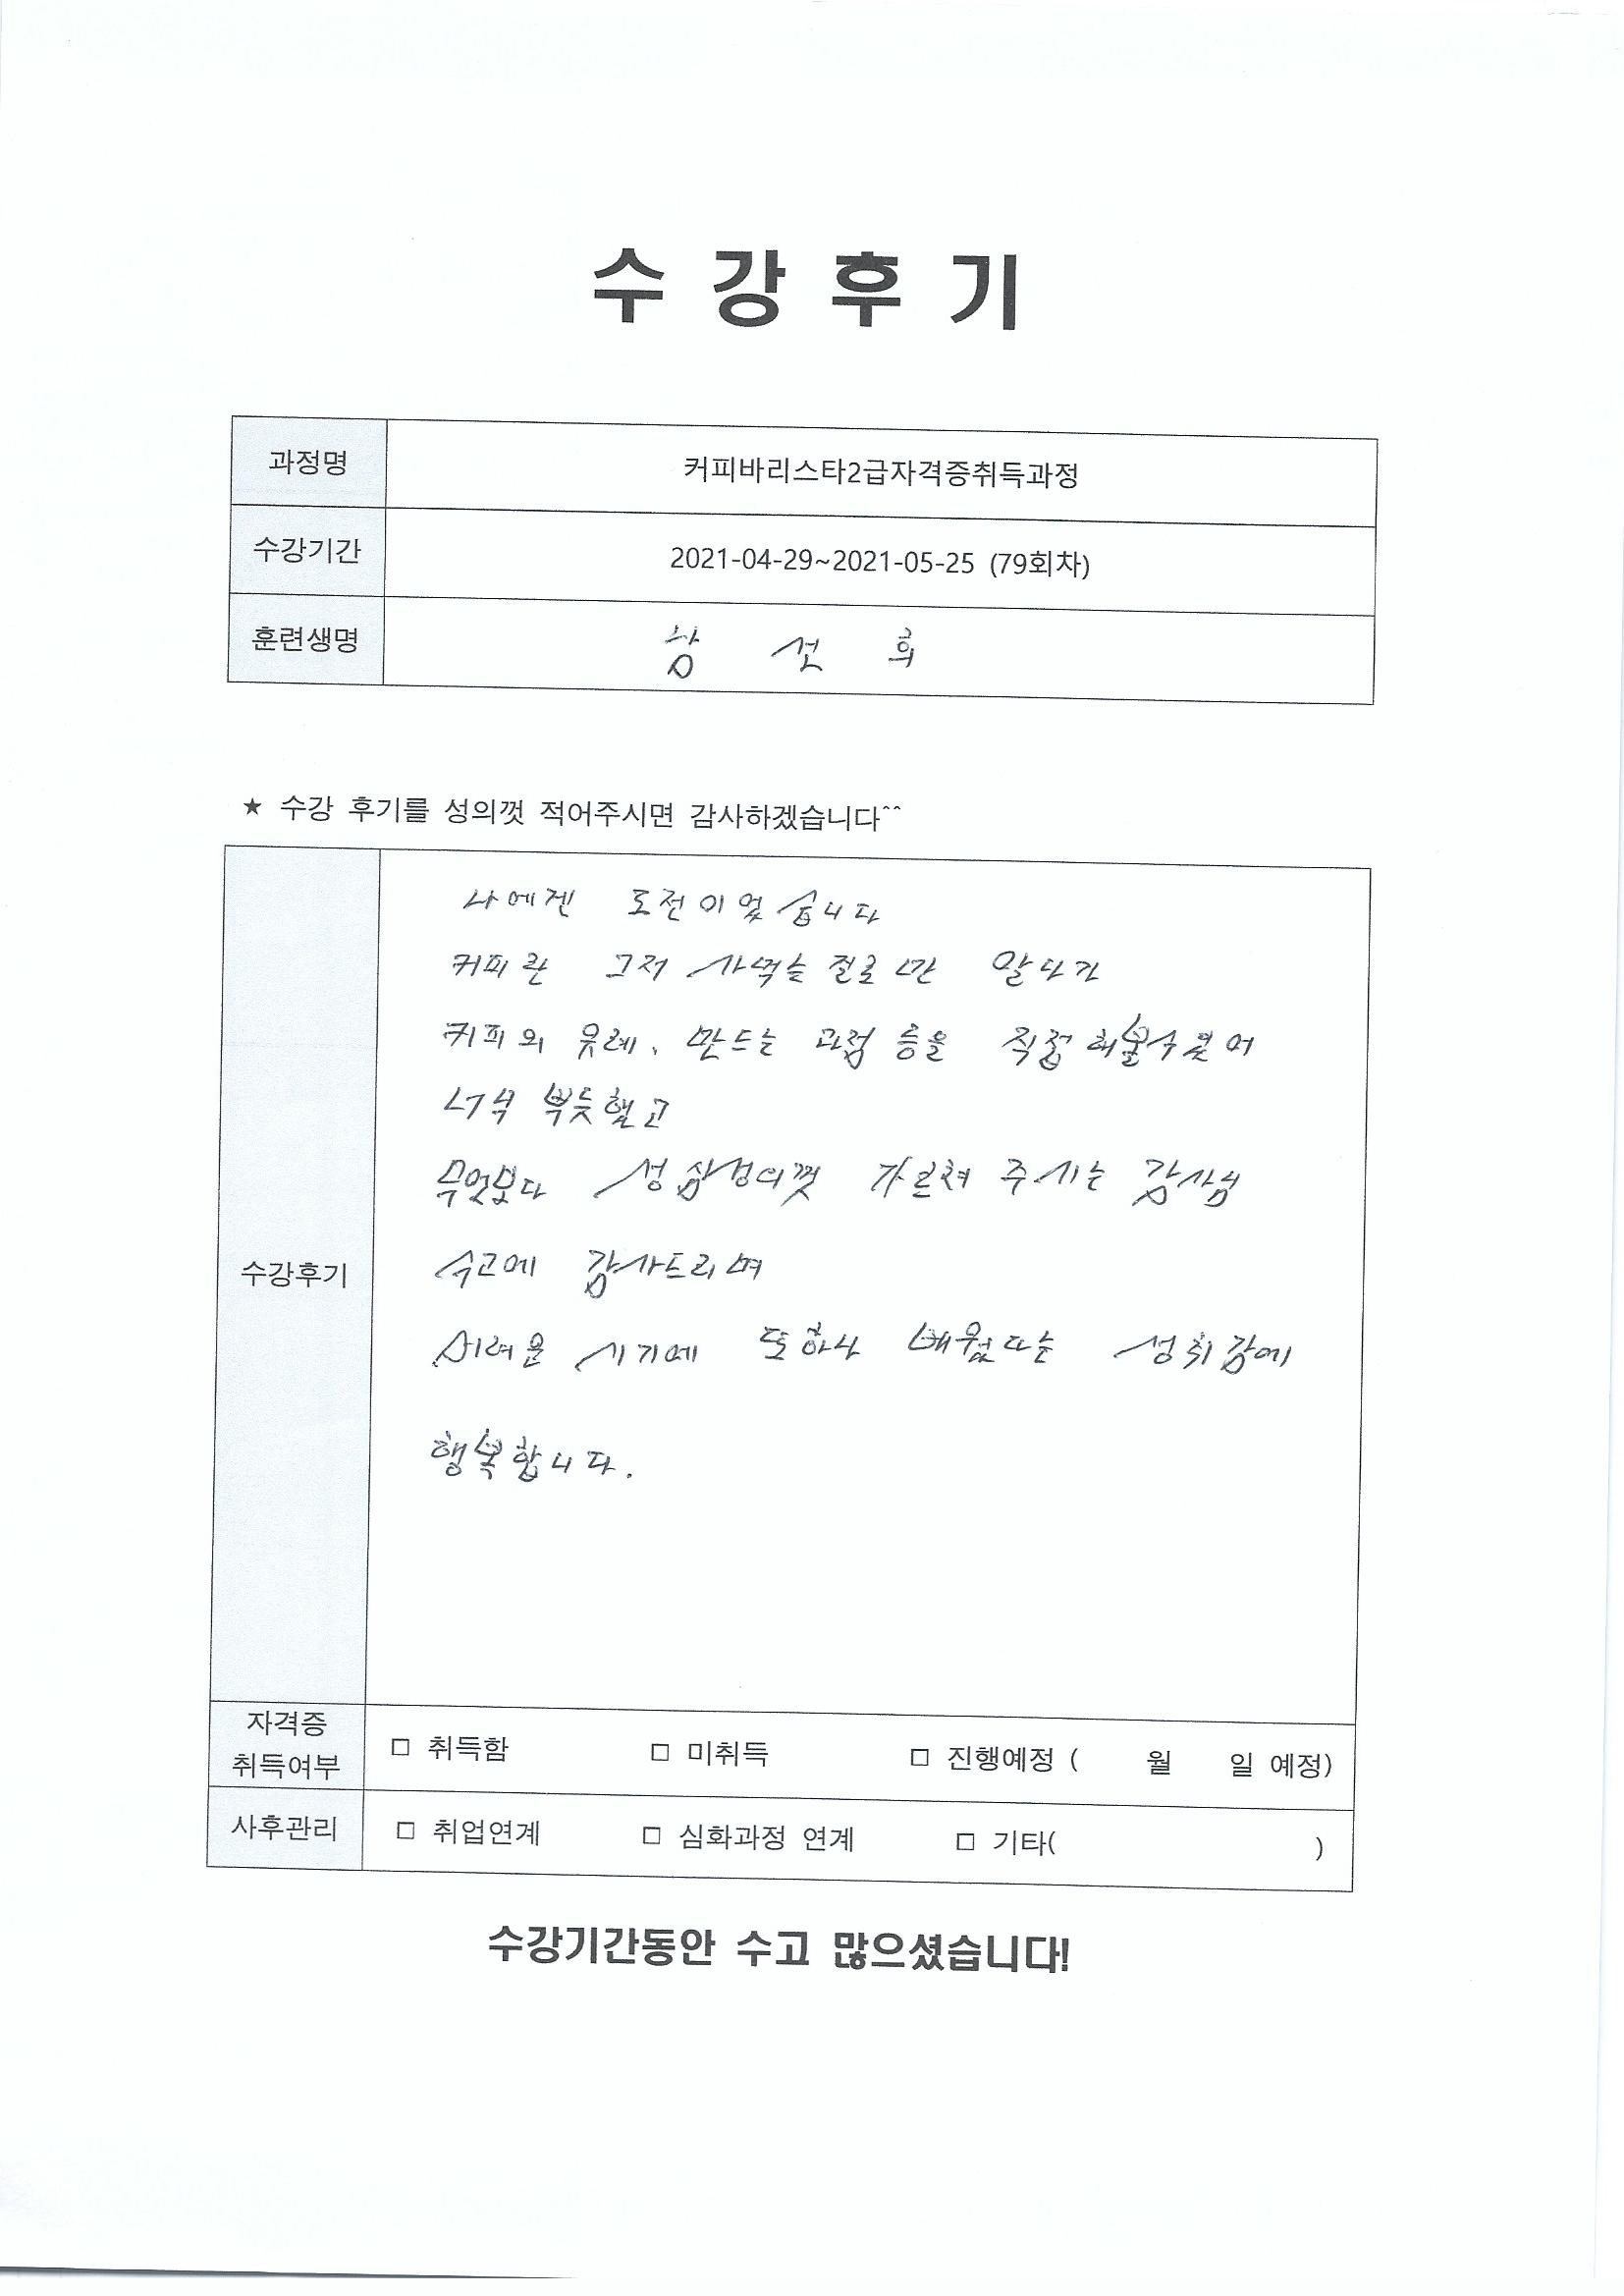 수강후기
과정명 커피바리스타2급자격증취득과정
수강기간 2021-04-29~2021-05-25 (79회차)
훈련생명 선희
★ 수강 후기를 성의껏 적어주시면 감사하겠습니다^^
수강후기
나에겐 도전이었습니다
커피란 그저 사먹는 걸로만 알다가
커피의 유례, 만드는 과정 등을 직접 해볼수 있어
너무 뿌듯했고
무엇보다 성심성의껏 가르쳐 주시는 강사님
수고에 감사드리며
어려운 시기에 또하나 배웠다는 성취감에
행복합니다.
자격증 취득여부 □ 취득함 □ 미취득 □ 진행예정 ( 월 일 예정)
사후관리 □ 취업연계 □ 심화과정 연계 □ 기타( )
수강기간동안 수고 많으셨습니다!